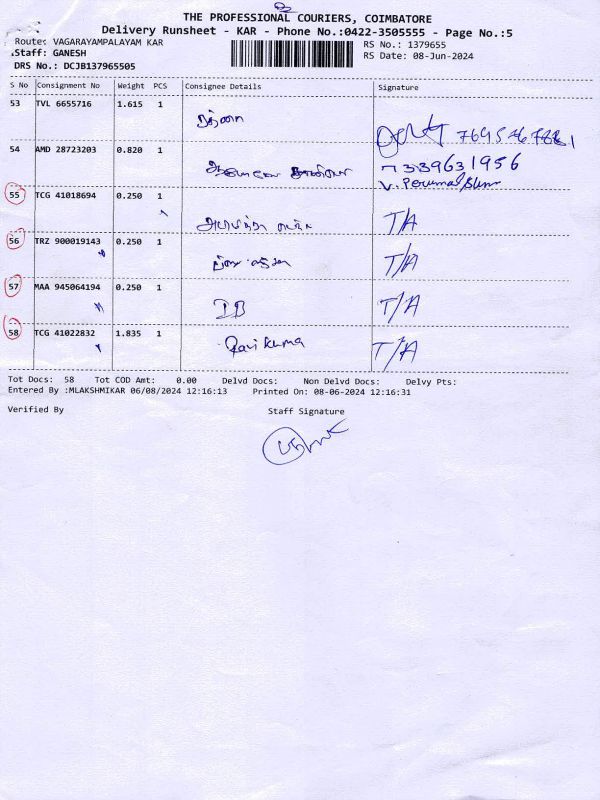 THE PROFESSIONAL COURIERS, COIMBATORE
Delivery Runsheet - KAR - Phone No.:0422-3505555 - Page No.:5
Route: VAGARAYAMPALAYAM KAR
RS No.: 1379655
Staff: GANESH
RS Date: 08-Jun-2024
DRS No.: DCJB137965505
S No Consignment No Weight PCS Consignee Details Signature
53 TVL 6655716 1.615 1
54 AMD 28723203 0.820 1 7339631956
V. Perumal
55 TCG 41018694 0.250 1 T/A
56 TRZ 900019143 0.250 1 T/A
57 MAA 945064194 0.250 1 IB T/A
58 TCG 41022832 1.835 1 Ravikuma T/A
Tot Docs: 58 Tot COD Amt: 0.00 Delvd Docs: Non Delvd Docs: Delvy Pts:
Entered By :MLAKSHMIKAR 06/08/2024 12:16:13 Printed On: 08-06-2024 12:16:31
Verified By Staff Signature